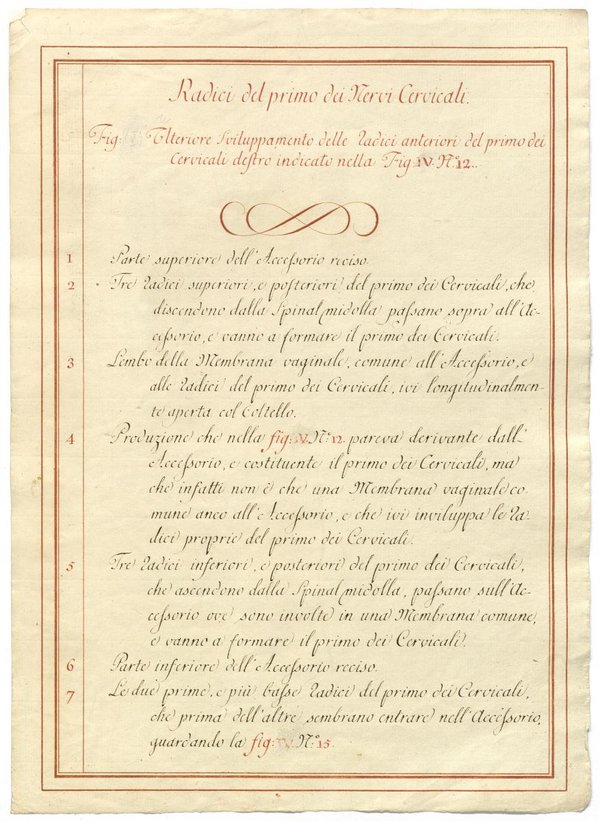 Radici del primo dei Nervi Cervicali.
Fig: Ulteriore Sviluppamento delle Radici anteriori del primo dei
Cervicali destro indicato nella Fig: IV. N.º 12.
1 Parte superiore dell'Accessorio reciso.
2 Tre Radici superiori, e posteriori del primo dei Cervicali, che
discendono dalla Spinal midolla passano sopra all'Ac-
cessorio, e vanno a formare il primo dei Cervicali.
3 Lembo della Membrana vaginale, comune all'Accessorio, e
alle Radici del primo dei Cervicali, ivi longitudinalmen-
te aperta col Coltello.
4 Produzione che nella fig: IV. N.º 12. pareva derivante dall'
Accessorio, e costituente il primo dei Cervicali, ma
che infatti non è che una Membrana vaginale co-
mune anco all'Accessorio, e che ivi inviluppa le Ra-
dici proprie del primo dei Cervicali.
5 Tre Radici inferiori, e posteriori del primo dei Cervicali,
che ascendono dalla Spinal midolla, passano sull'Ac-
cessorio ove sono involte in una Membrana comune,
e vanno a formare il primo dei Cervicali.
6 Parte inferiore dell'Accessorio reciso.
7 Le due prime, e più basse Radici del primo dei Cervicali,
che prima dell'altre sembrano entrare nell'Accessorio,
guardando la fig: IV. N.º 15.